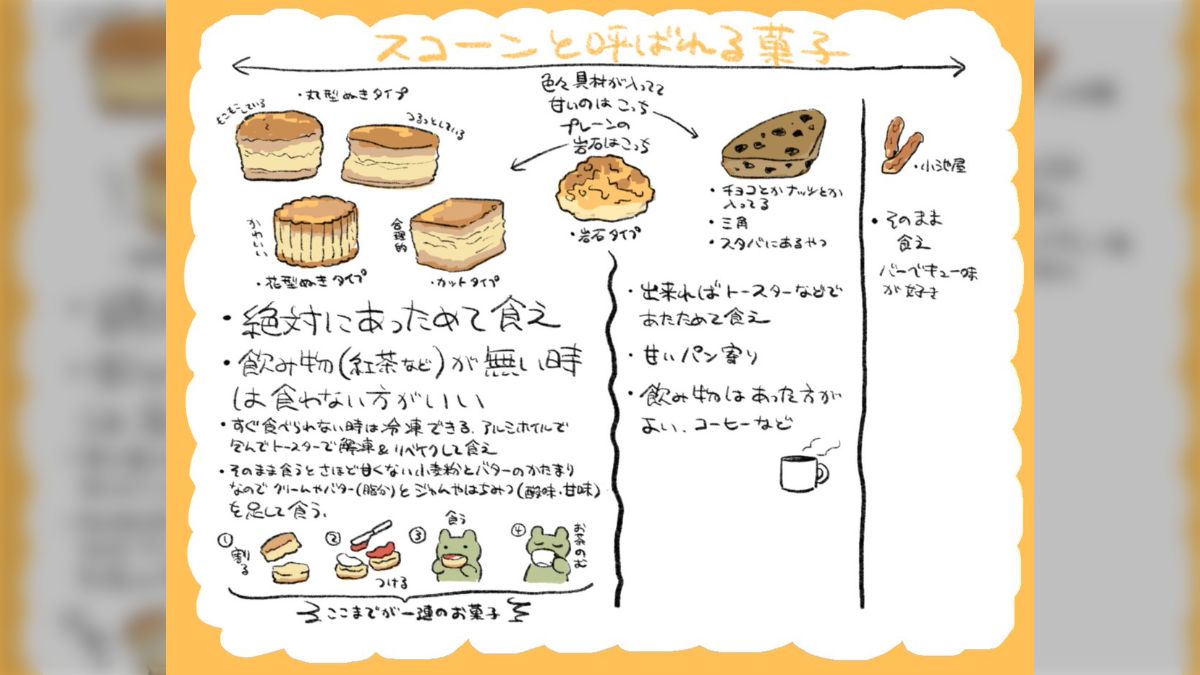 スコーンと呼ばれる菓子
・丸型ぬきタイプ
もこもこしている
つるっとしている
色々具材が入ってて
甘いのはこっち
プレーンの
岩石はこっち
かわいい
・花型ぬきタイプ
合理的
・カットタイプ
・岩石タイプ
・チョコとかナッツとか
入ってる
・三角
・スタバにあるやつ
・小池屋
・絶対にあっためて食え
・飲み物(紅茶など)が無い時
は食わない方がいい
・すぐ食べられない時は冷凍できる、アルミホイルで
包んでトースターで解凍&リベイクして食え
・そのまま食うとさほど甘くない小麦粉とバターのかたまり
なのでクリームやバター(脂分)とジャムやはちみつ(酸味・甘味)
を足して食う、
①割る
②つける
③食う
④お茶のむ
ここまでが一連のお菓子
・出来ればトースターなどで
あたためて食え
・甘いパン寄り
・飲み物はあった方が
よい、コーヒーなど
・そのまま
食え
バーベキュー味
が好き